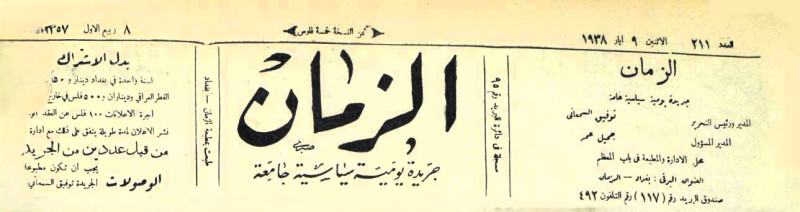 العدد ٢١١
الاثنين ٩ ايار ١٩٣٨
ثمن النسخة خمسة فلوس
٨ ربيع الاول ١٣٥٧
الزمان
جريدة يومية سياسية عامة
المدير ورئيس التحرير
توفيق السمعاني
المدير المسؤول
جميل حمر
محل الادارة والمطبعة في باب المعظم
العنوان البرقي : بغداد — الزمان
صندوق البريد رقم (١١٧) رقم التلفون ٤٩٢
مسجلة في دائرة البريد رقم ٩٥
الزمان
صبري
جريدة يومية سياسية جامعة
طبعت بمطبعة الزمان — بغداد
بدل الاشتراك
لسنة واحدة في بغداد دينار و ٥٠
القطر العراقي وديناران و ٥٠٠ فلس في خارج
اجرة الاعلانات ١٠٠ فلس عن العقد
نشر الاعلان لمدة طويلة يتفق على ذلك مع ادارة
من قبل عددين من الجريد
الوصولات
يجب ان تكون مطبوعة
الجريدة توفيق السمعاني